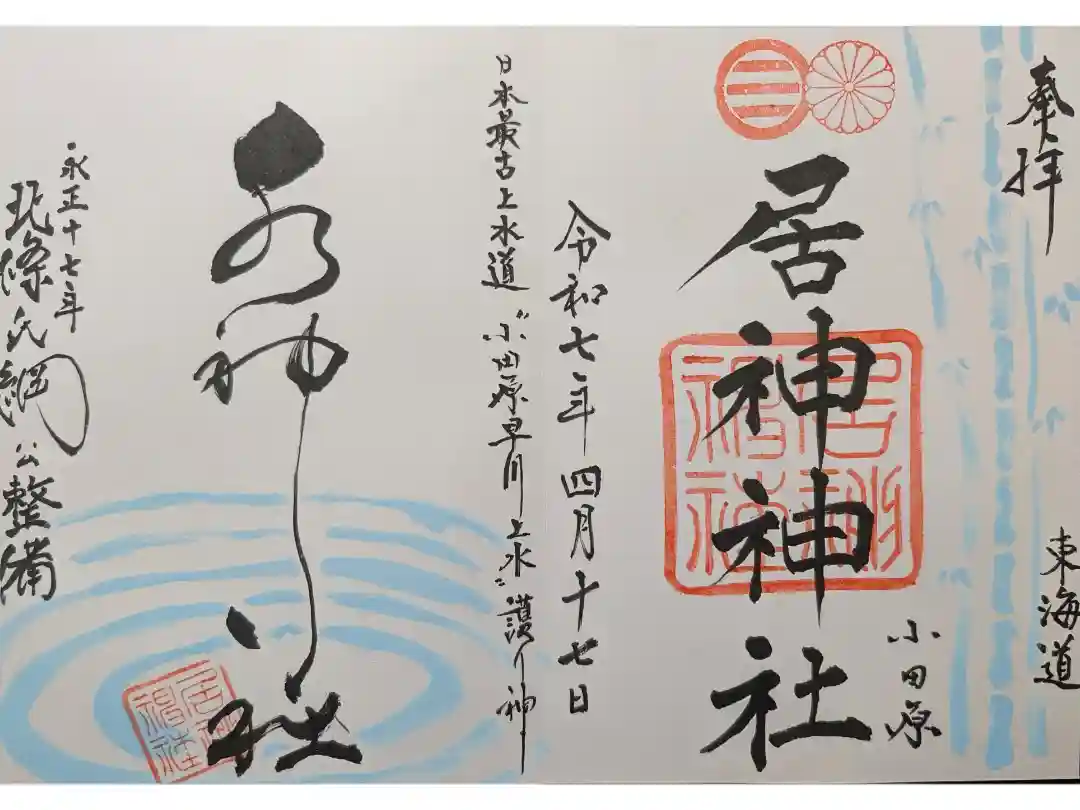 奉拝
東海道
小田原
居神神社
居神神社
令和七年四月十七日
日本最古上水道〝小田原早川上水〟護り神
水神社
居神神社
永正十七年
北條氏綱公整備